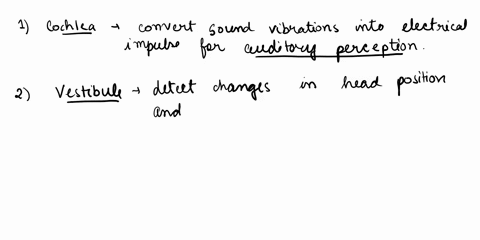 1) Cochlea → convert sound vibrations into electrical
impulse for auditory perception.
2) Vestibule → detect changes in head position
and